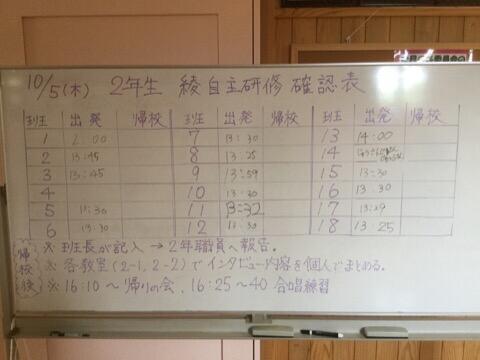 10/5(木) 2年生 綾自主研修 確認表
班 出発 帰校 班 出発 帰校 班 出発 帰校
1 :00 7 13:30 13 14:00
2 13:45 8 13:25 14
3 13:45 9 13:59 15 13:30
4 10 13:30 16 13:30
5 :30 11 13:32 17 13:29
6 13:30 12 13:30 18 13:25
帰校後
※ 班長が記入 → 2年職員へ報告。
※ 各教室(2-1, 2-2)でインタビュー内容を個人でまとめる。
※ 16:10 〜 帰りの会、16:25 〜 40 合唱練習